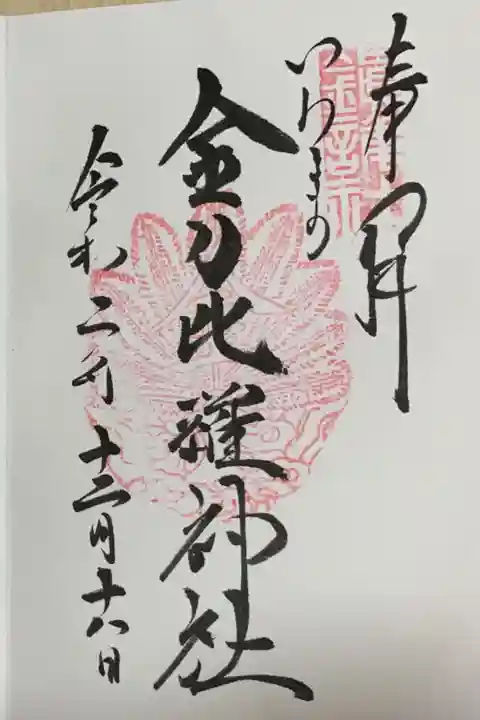 奉拝
いわまの
金刀比羅神社
令和二年十二月十八日